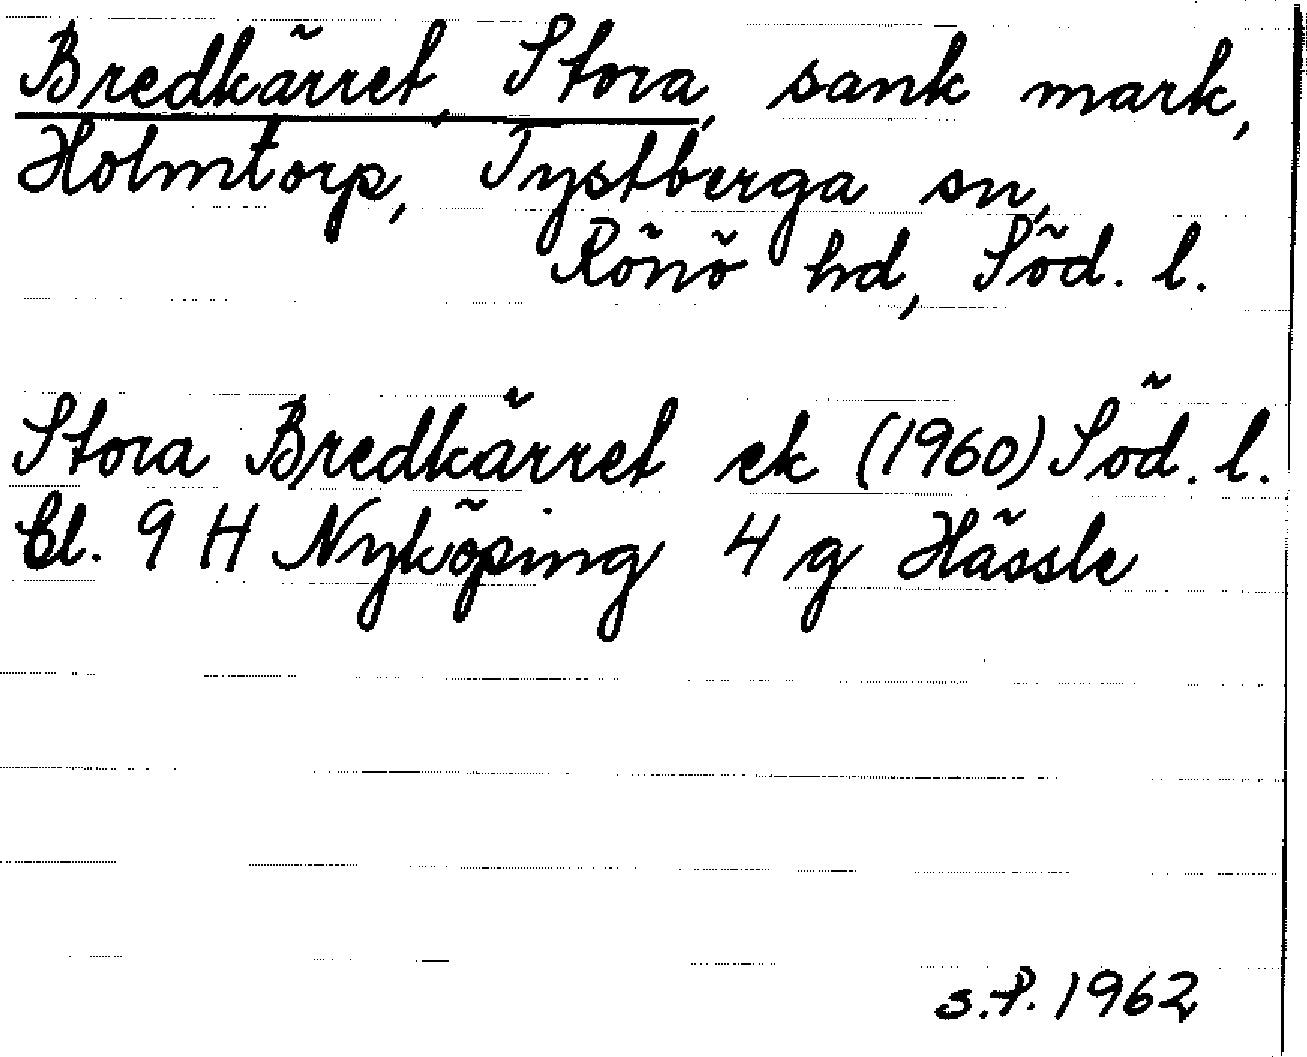 Bredkärret, Stora, sank mark,
Holmtorp, Tystberga sn,
Rönö hd, Söd. l.
Stora Bredkärret ek (1960) Söd. l.
bl. 9 H Nyköping 4 g Hässle
s.P. 1962